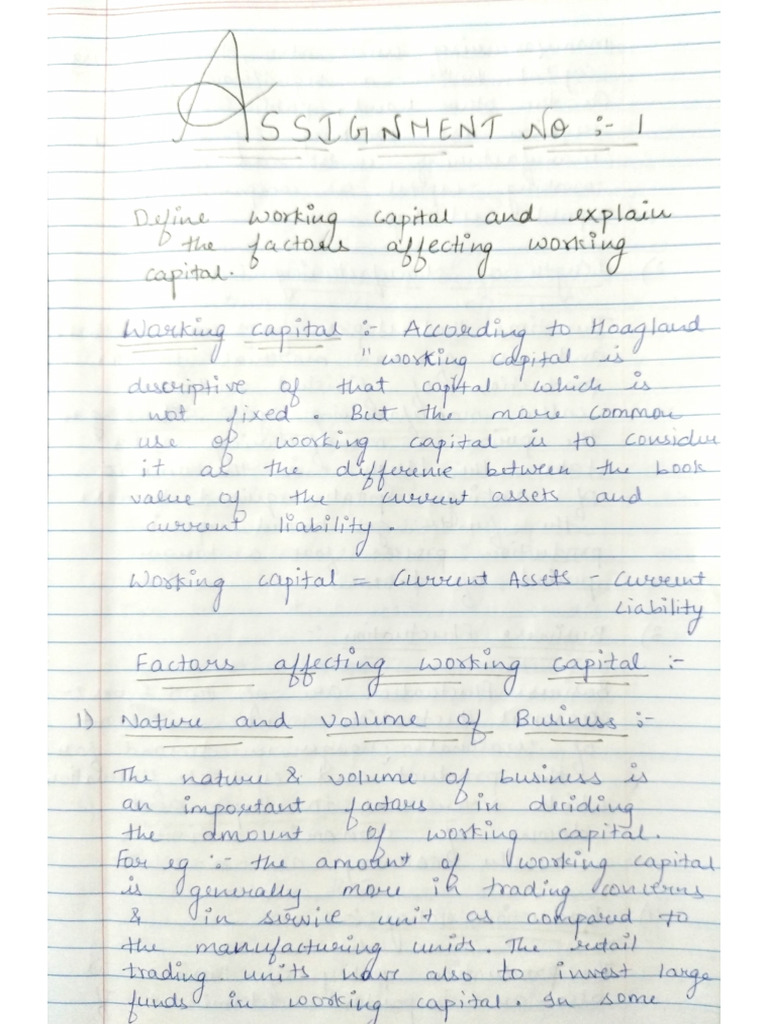 ASSIGNMENT NO :- 1
Define working capital and explain
the factors affecting working
capital.
Working capital :- According to Hoagland
"working capital is
descriptive of that capital which is
not fixed. But the more common
use of working capital is to consider
it as the difference between the book
value of the current assets and
current liability.
Working capital = Current Assets - Current
Liability
Factors affecting working capital :-
1) Nature and volume of Business :-
The nature & volume of business is
an important factors in deciding
the amount of working capital.
For eg :- the amount of working capital
is generally more in trading concerns
& in service unit as compared to
the manufacturing units. The retail
trading units have also to invest large
funds in working capital. In some